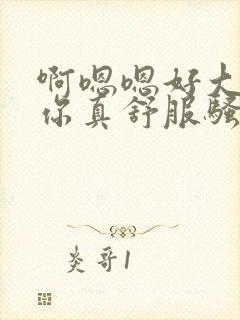 啊嗯嗯好大
你真舒服骚
炎哥1